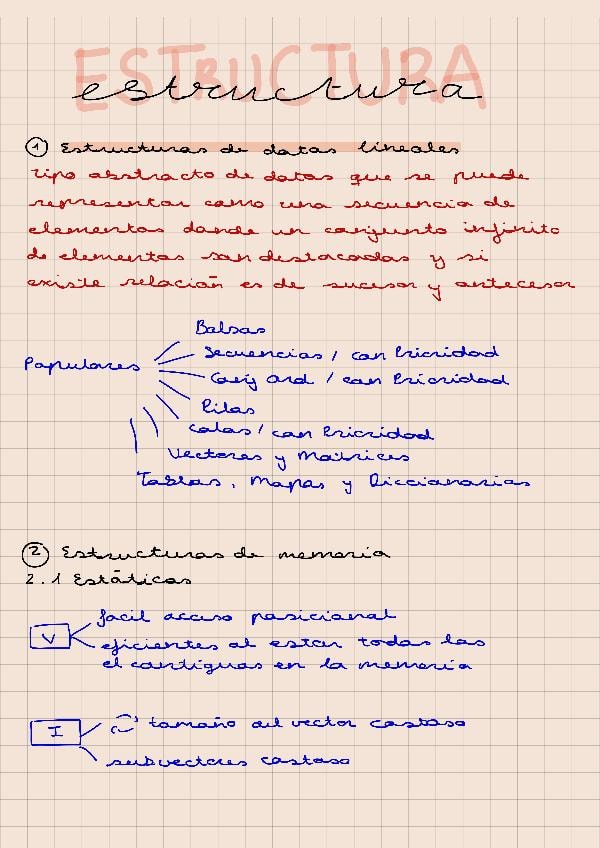 ESTRUCTURA
estructura
1 Estructuras de datos lineales
Tipo abstracto de datos que se puede
representar como una secuencia de
elementos donde un conjunto infinito
de elementos son destacadas y si
existe relación es de sucesor y antecesor
Bolsas
Populares
Secuencias / con Prioridad
Conj ord / con Prioridad
Pilas
colas / con Prioridad
Vectores y Matrices
Tablas, Mapas y Diccionarios
2 Estructuras de memoria
2.1 Estáticas
facil acceso posicional
V
eficientes al estar todos los
el contiguos en la memoria
I
tamaño del vector costoso
subvectores costoso